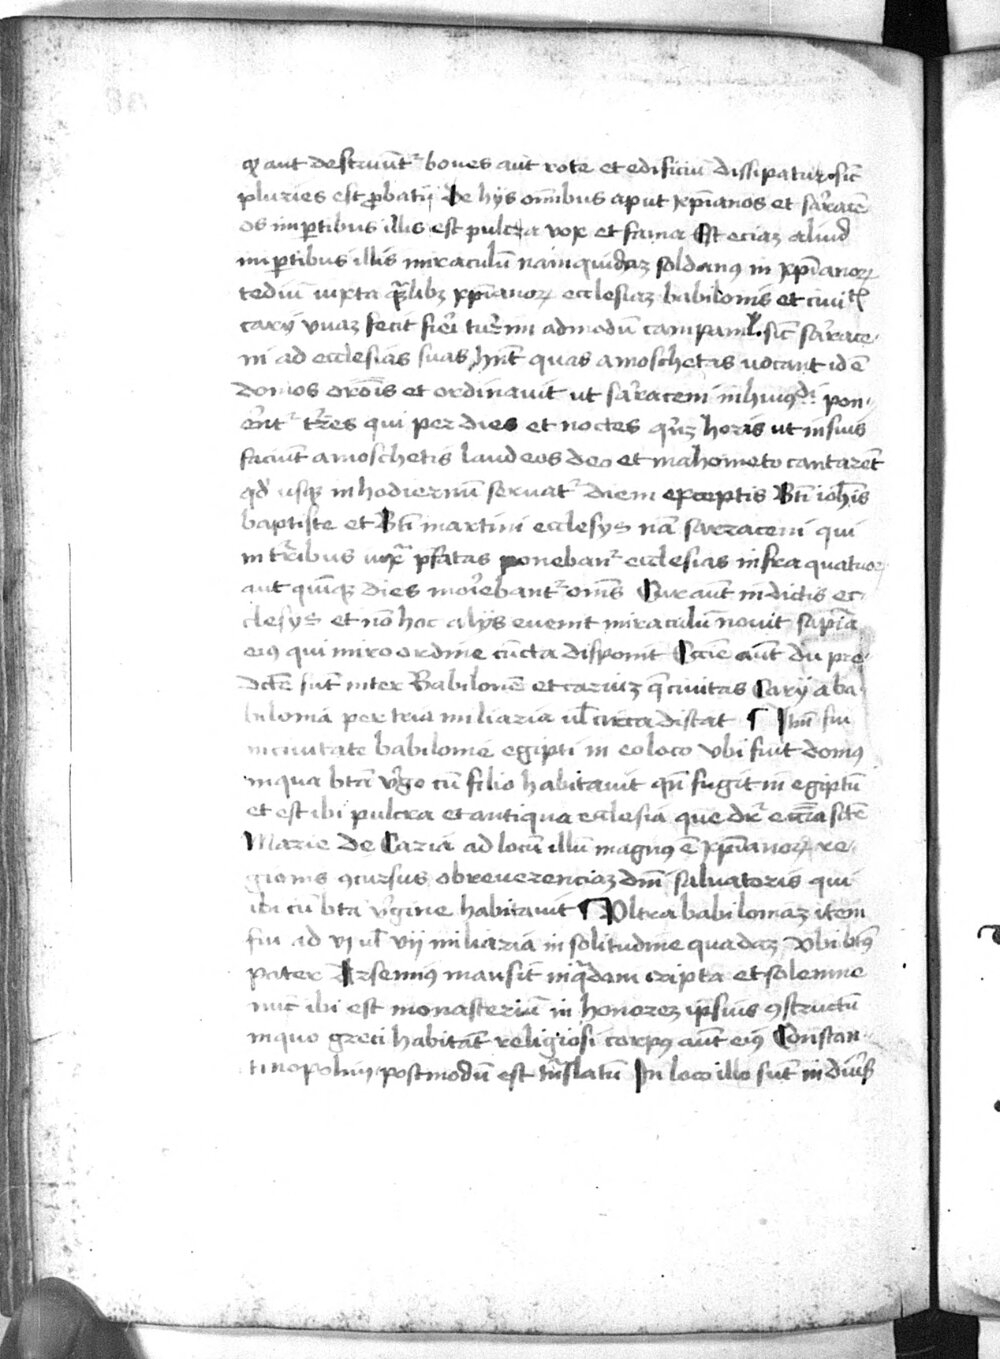 qr aut destruūt᷑ boues aut rote et edificiū dissipatur sic̄
pluries est ꝓbatū De hys om̄ibus aput xp̄ianos et sar̓acē
os in ꝑtibus illis est pulcra vox et fama Est eciaꝫ aliud
in ꝑtibus illis miraculū nam quidaꝫ soldanꝰ in xp̄ianoꝝ
tediū iuxta q̄mlibꝫ xp̄ianoꝝ ecclesiaꝫ babilonis et ciuitꝭ
caryi vnaꝫ fecit fier̓i tur̓im admodū campanil̓ sic̄ sar̓ace-
ni ad ecclesias suas hn̄t quas amoschetas uocant id ē
domos or̄onis et ordinauit ut sar̓aceni in hui9d̓i pon-
er̄nt᷑ tr̄res qui per dies et noctes q̄rꝫ horis ut in suis
faciūt amoschetis laudeos deo et mahometo cantarēt
qd̓ usqꝫ in hodiernū seruat᷑ diem exceptis Bt̄i ioh̄is
baptiste et Bt̄i martini ecclesys nā sarraceni qui
in tr̄ribus iux̄ p̄fatas ponebant᷑ ecclesias infra quatuor
aut quīqꝫ dies mor̓ebant᷑ om̄s Cur aūt in dictis ec-
clesys et nō hoc alijs euenit miraculū nouit sapīa
eiꝰ qui miro ordine cūcta disponit Eccīe aūt due pre-
dictē sūt inter Babilonē et caruiꝫ q̄ ciuitas Caryi a ba-
bilonia per tria miliaria ul̓ circa distat ¶ Itm̄ fui
in ciuitate babilonie egipti in eo loco vbi fuit domꝰ
in qua bt̄a v̓go cū filio habitauit qn̄ fugit in egiptū
et est ibi pulcra et antiqua ecclesia que dr̄ eccīa sc̄te
Marie de Cazia ad locū illū magnꝰ ē xp̄ianoꝝ re-
gionis 9cursus ob reuerenciaꝫ dn̄i saluatoris qui
ibi cū bta v̓gine habitauit ¶ Vltra babiloniaꝫ item
fui ad vj ul̓ vij miliaria in solitudine quadaꝫ vbi bt̄ꝰ
pater Arseniꝰ mansit in q̄dam cripta et solenne
nūc ibi est monasteriū in honoreꝫ ipsius 9structū
in quo greci habitāt religiosi corpꝰ aūt eiꝰ Constan-
tinopolim postmodū est trā̄slatū In loco illo sūt in diu̓s